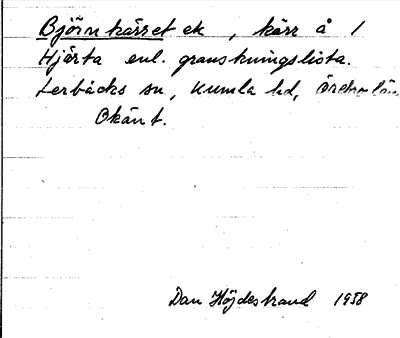 Björnkärret ek, kärr å 1
Hjärta enl. granskningslista.
Lerbäcks sn, Kumla hd, Örebro län
Okänt.
Dan Höjdestrand 1958